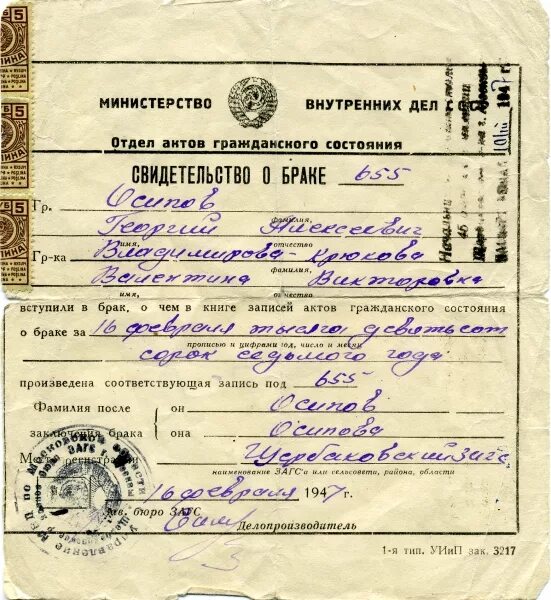 5
МИНИСТЕРСТВО ВНУТРЕННИХ ДЕЛ
Отдел актов гражданского состояния
СВИДЕТЕЛЬСТВО О БРАКЕ 655
Гр. Осипов
фамилия,
Георгий Алексеевич
имя, отчество
Гр-ка Владимирова-Крюкова
фамилия,
Валентина Викторовна
имя, отчество
вступили в брак, о чем в книге записей актов гражданского состояния
о браке за 16 февраля тысяча девятьсот
прописью и цифрами год, число и месяц
сорок седьмого года
произведена соответствующая запись под 655
Фамилия после он Осипов
заключения брака она Осипова
Щербаковский загс
наименование ЗАГС'а или сельсовета, района, области
16 февраля 1947 г.
бюро ЗАГС
Делопроизводитель
1-я тип. УИиП зак. 3217
5
5